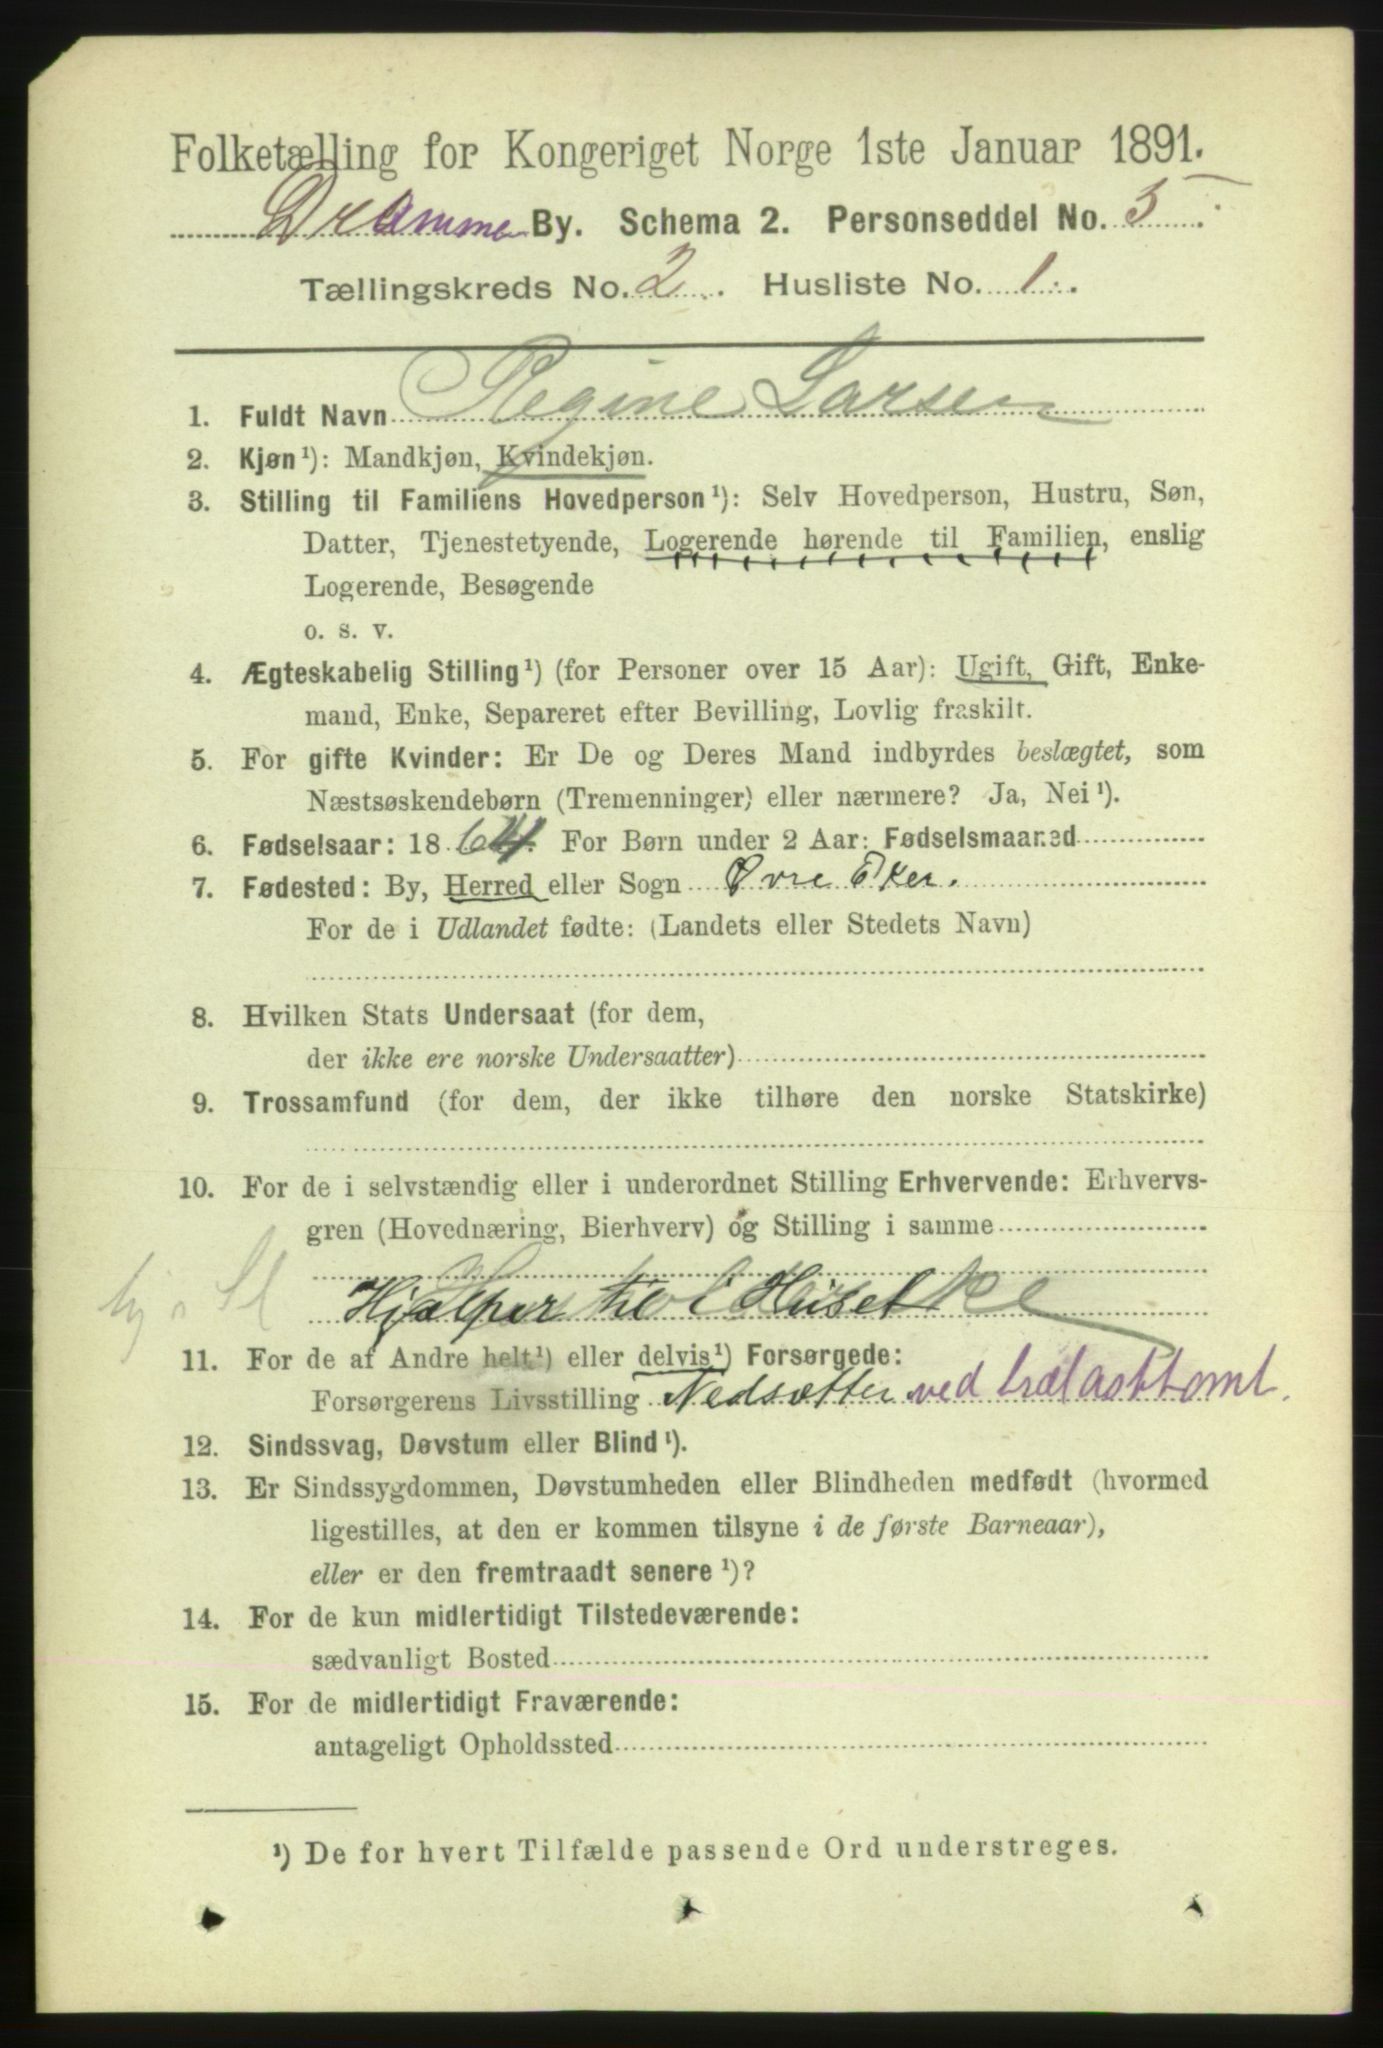 Folketælling for Kongeriget Norge 1ste Januar 1891.
Drammen By. Schema 2. Personseddel No. 5.
Tællingskreds No. 2. Husliste No. 1.
1. Fuldt Navn Regine Larsen
2. Kjøn¹): Mandkjøn, Kvindekjøn.
3. Stilling til Familiens Hovedperson¹): Selv Hovedperson, Hustru, Søn,
Datter, Tjenestetyende, Logerende hørende til Familien, enslig
Logerende, Besøgende
o. s. v.
4. Ægteskabelig Stilling¹) (for Personer over 15 Aar): Ugift, Gift, Enke-
mand, Enke, Separeret efter Bevilling, Lovlig fraskilt.
5. For gifte Kvinder: Er De og Deres Mand indbyrdes beslægtet, som
Næstsøskendebørn (Tremenninger) eller nærmere? Ja, Nei¹).
6. Fødselsaar: 1864. For Børn under 2 Aar: Fødselsmaaned
7. Fødested: By, Herred eller Sogn Øvre Eker.
For de i Udlandet fødte: (Landets eller Stedets Navn)
8. Hvilken Stats Undersaat (for dem,
der ikke ere norske Undersaatter)
9. Trossamfund (for dem, der ikke tilhøre den norske Statskirke)
10. For de i selvstændig eller i underordnet Stilling Erhvervende: Erhvervs-
gren (Hovednæring, Bierhverv) og Stilling i samme
Hjælper til i Huset
11. For de af Andre helt¹) eller delvis¹) Forsørgede:
Forsørgerens Livsstilling Nedsætter ved trælasttomt.
12. Sindssvag, Døvstum eller Blind¹).
13. Er Sindssygdommen, Døvstumheden eller Blindheden medfødt (hvormed
ligestilles, at den er kommen tilsyne i de første Barneaar),
eller er den fremtraadt senere¹)?
14. For de kun midlertidigt Tilstedeværende:
sædvanligt Bosted
15. For de midlertidigt Fraværende:
antageligt Opholdssted
¹) De for hvert Tilfælde passende Ord understreges.